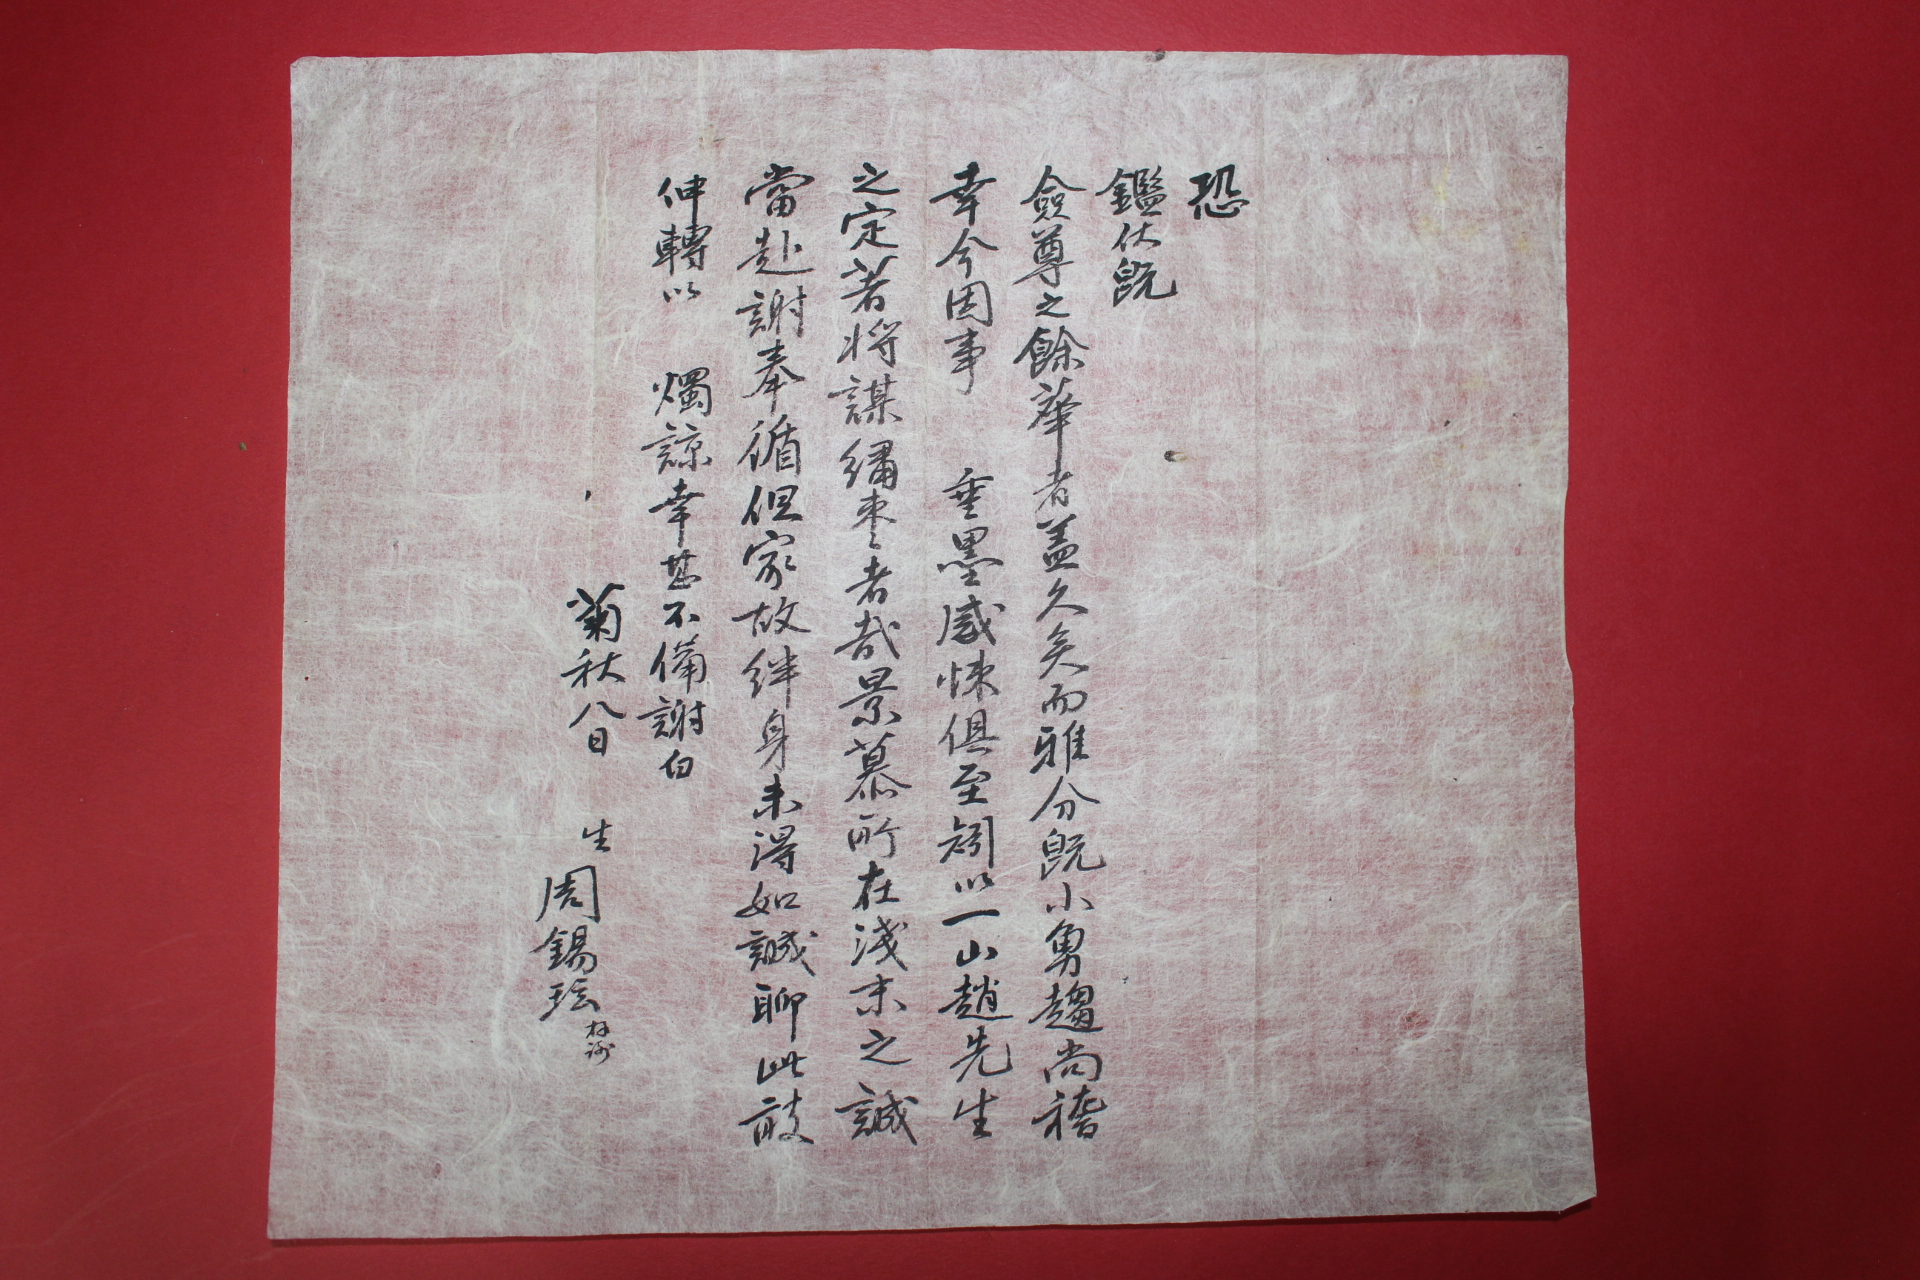 恐
鑑伏旣
僉尊之餘華者盖久矣而雅分旣小勇趨尚稽
幸今因事 垂墨感悚俱至矧以一山趙先生
之定著將謀繡枣者哉景慕所在淺末之誠
當赴謝奉循但家故絆身未得如誠聊此敲
伸轉以 燭諒幸甚不備謝白
菊秋八日 生 周錫
拜謝